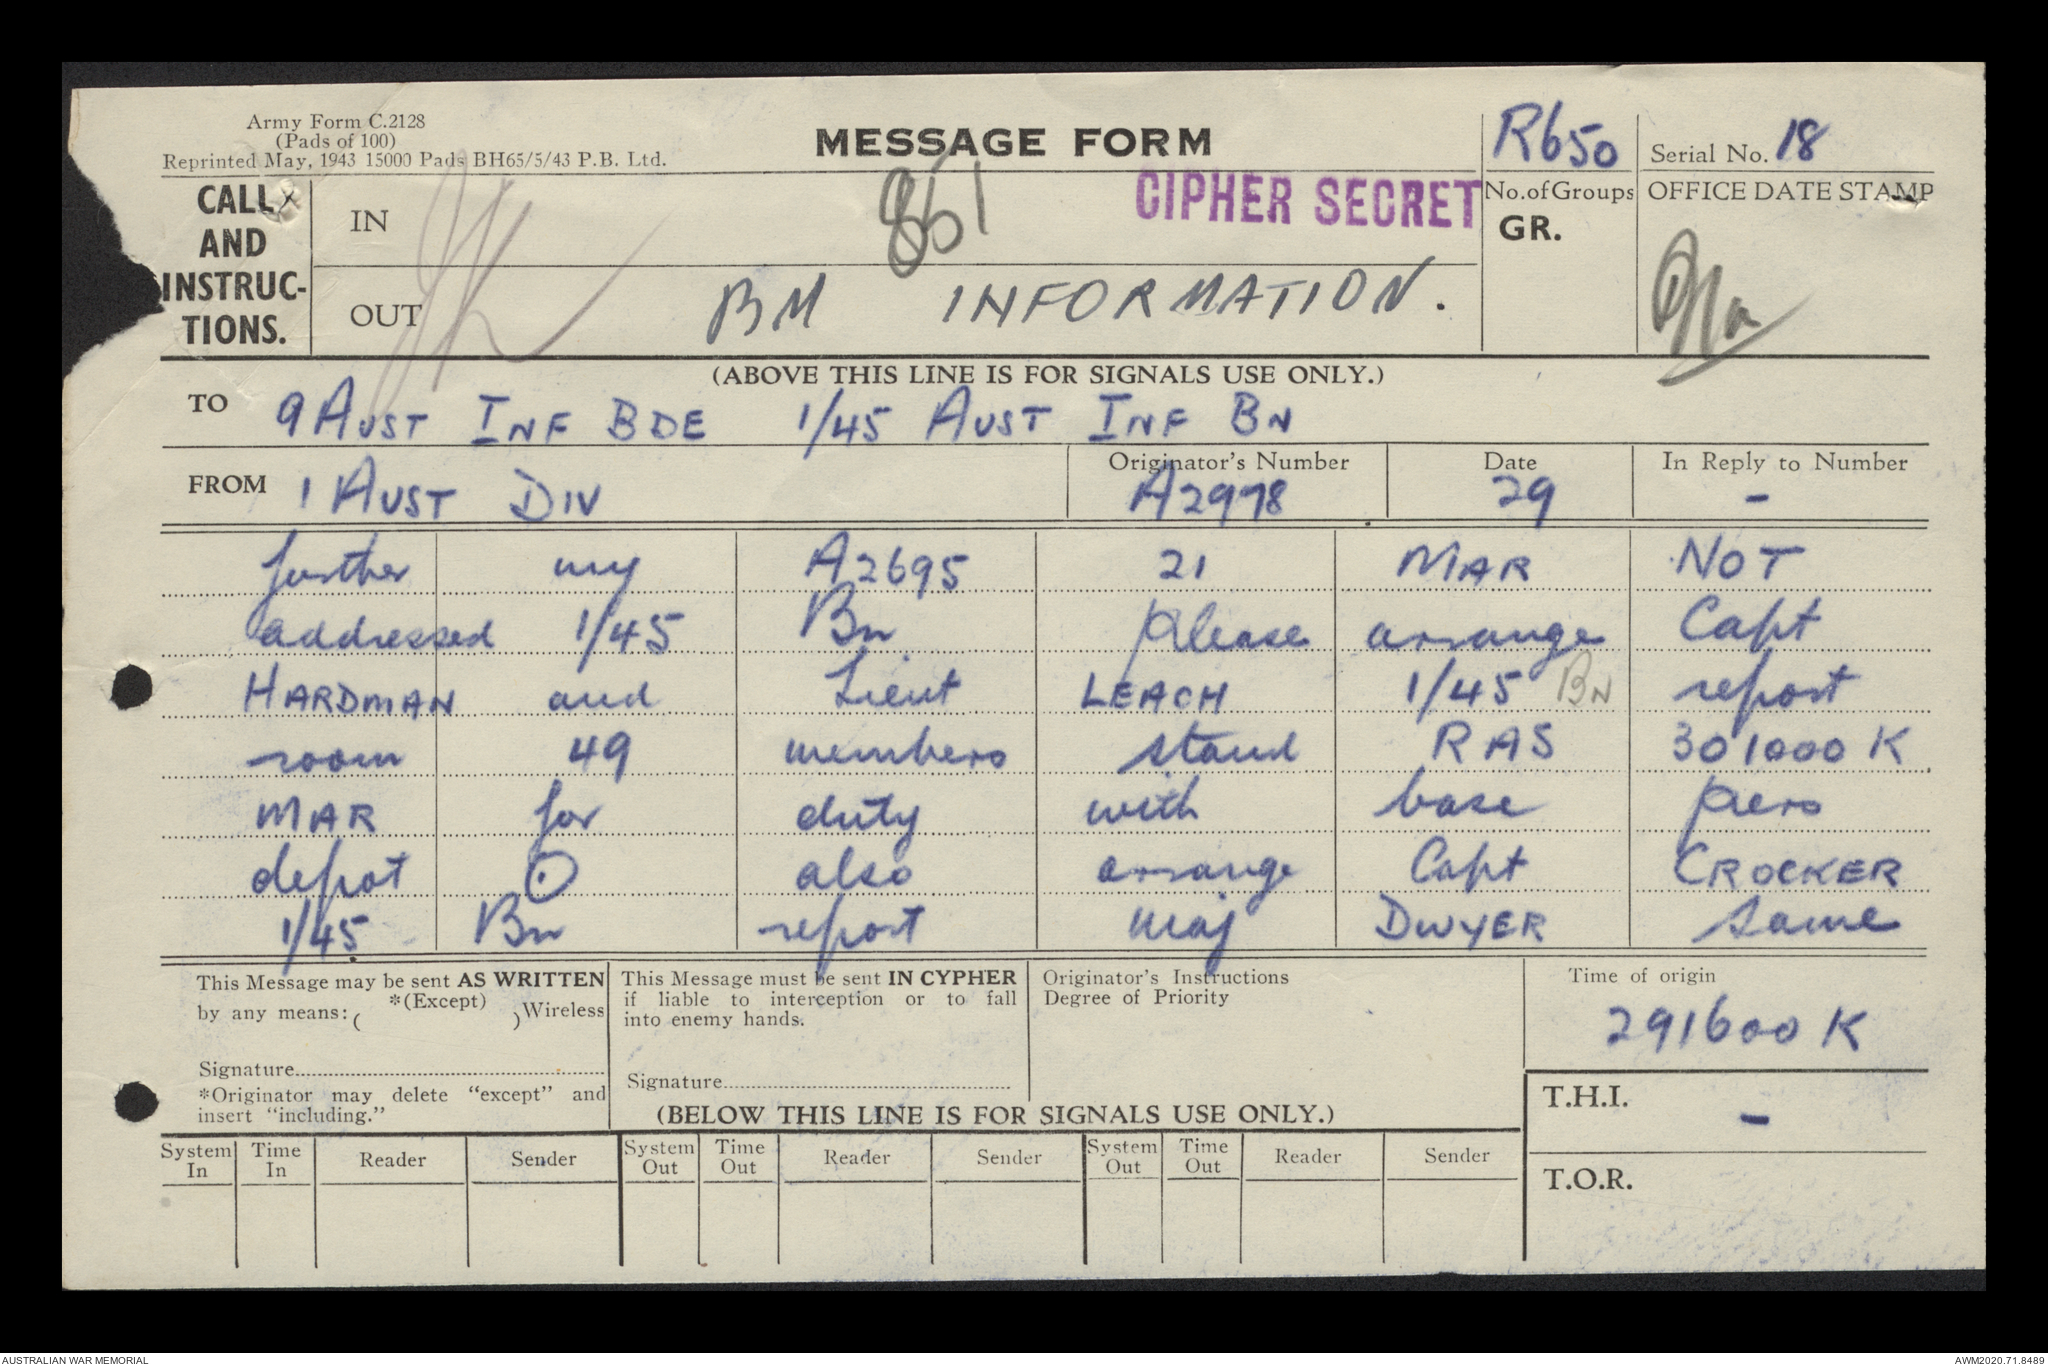 Army Form C.2128
(Pads of 100)
Reprinted May, 1943 15000 Pads BH65/5/43 P.B. Ltd.
MESSAGE FORM
R650
Serial No. 18
CALL
AND
INSTRUC-
TIONS.
IN
861
CIPHER SECRET
No. of Groups
GR.
OFFICE DATE STAMP
OUT
BM INFORMATION.
(ABOVE THIS LINE IS FOR SIGNALS USE ONLY.)
TO 9 AUST INF BDE 1/45 AUST INF BN
FROM 1 AUST DIV
Originator's Number
A2978
Date
29
In Reply to Number
-
further my A2695 21 MAR NOT
addressed 1/45 Bn please arrange Capt
HARDMAN and Lieut LEACH 1/45 BN report
room 49 members stand RAS 301000 K
MAR for duty with base pers
depot ⊙ also arrange Capt CROCKER
1/45 Bn report Maj DWYER same
This Message may be sent AS WRITTEN
by any means: ( *(Except) ) Wireless
Signature
*Originator may delete "except" and
insert "including."
This Message must be sent IN CYPHER
if liable to interception or to fall
into enemy hands.
Signature
Originator's Instructions
Degree of Priority
Time of origin
291600 K
(BELOW THIS LINE IS FOR SIGNALS USE ONLY.)
T.H.I.
-
T.O.R.
System In
Time In
Reader
Sender
System Out
Time Out
Reader
Sender
System Out
Time Out
Reader
Sender
AUSTRALIAN WAR MEMORIAL
AWM2020.71.8489